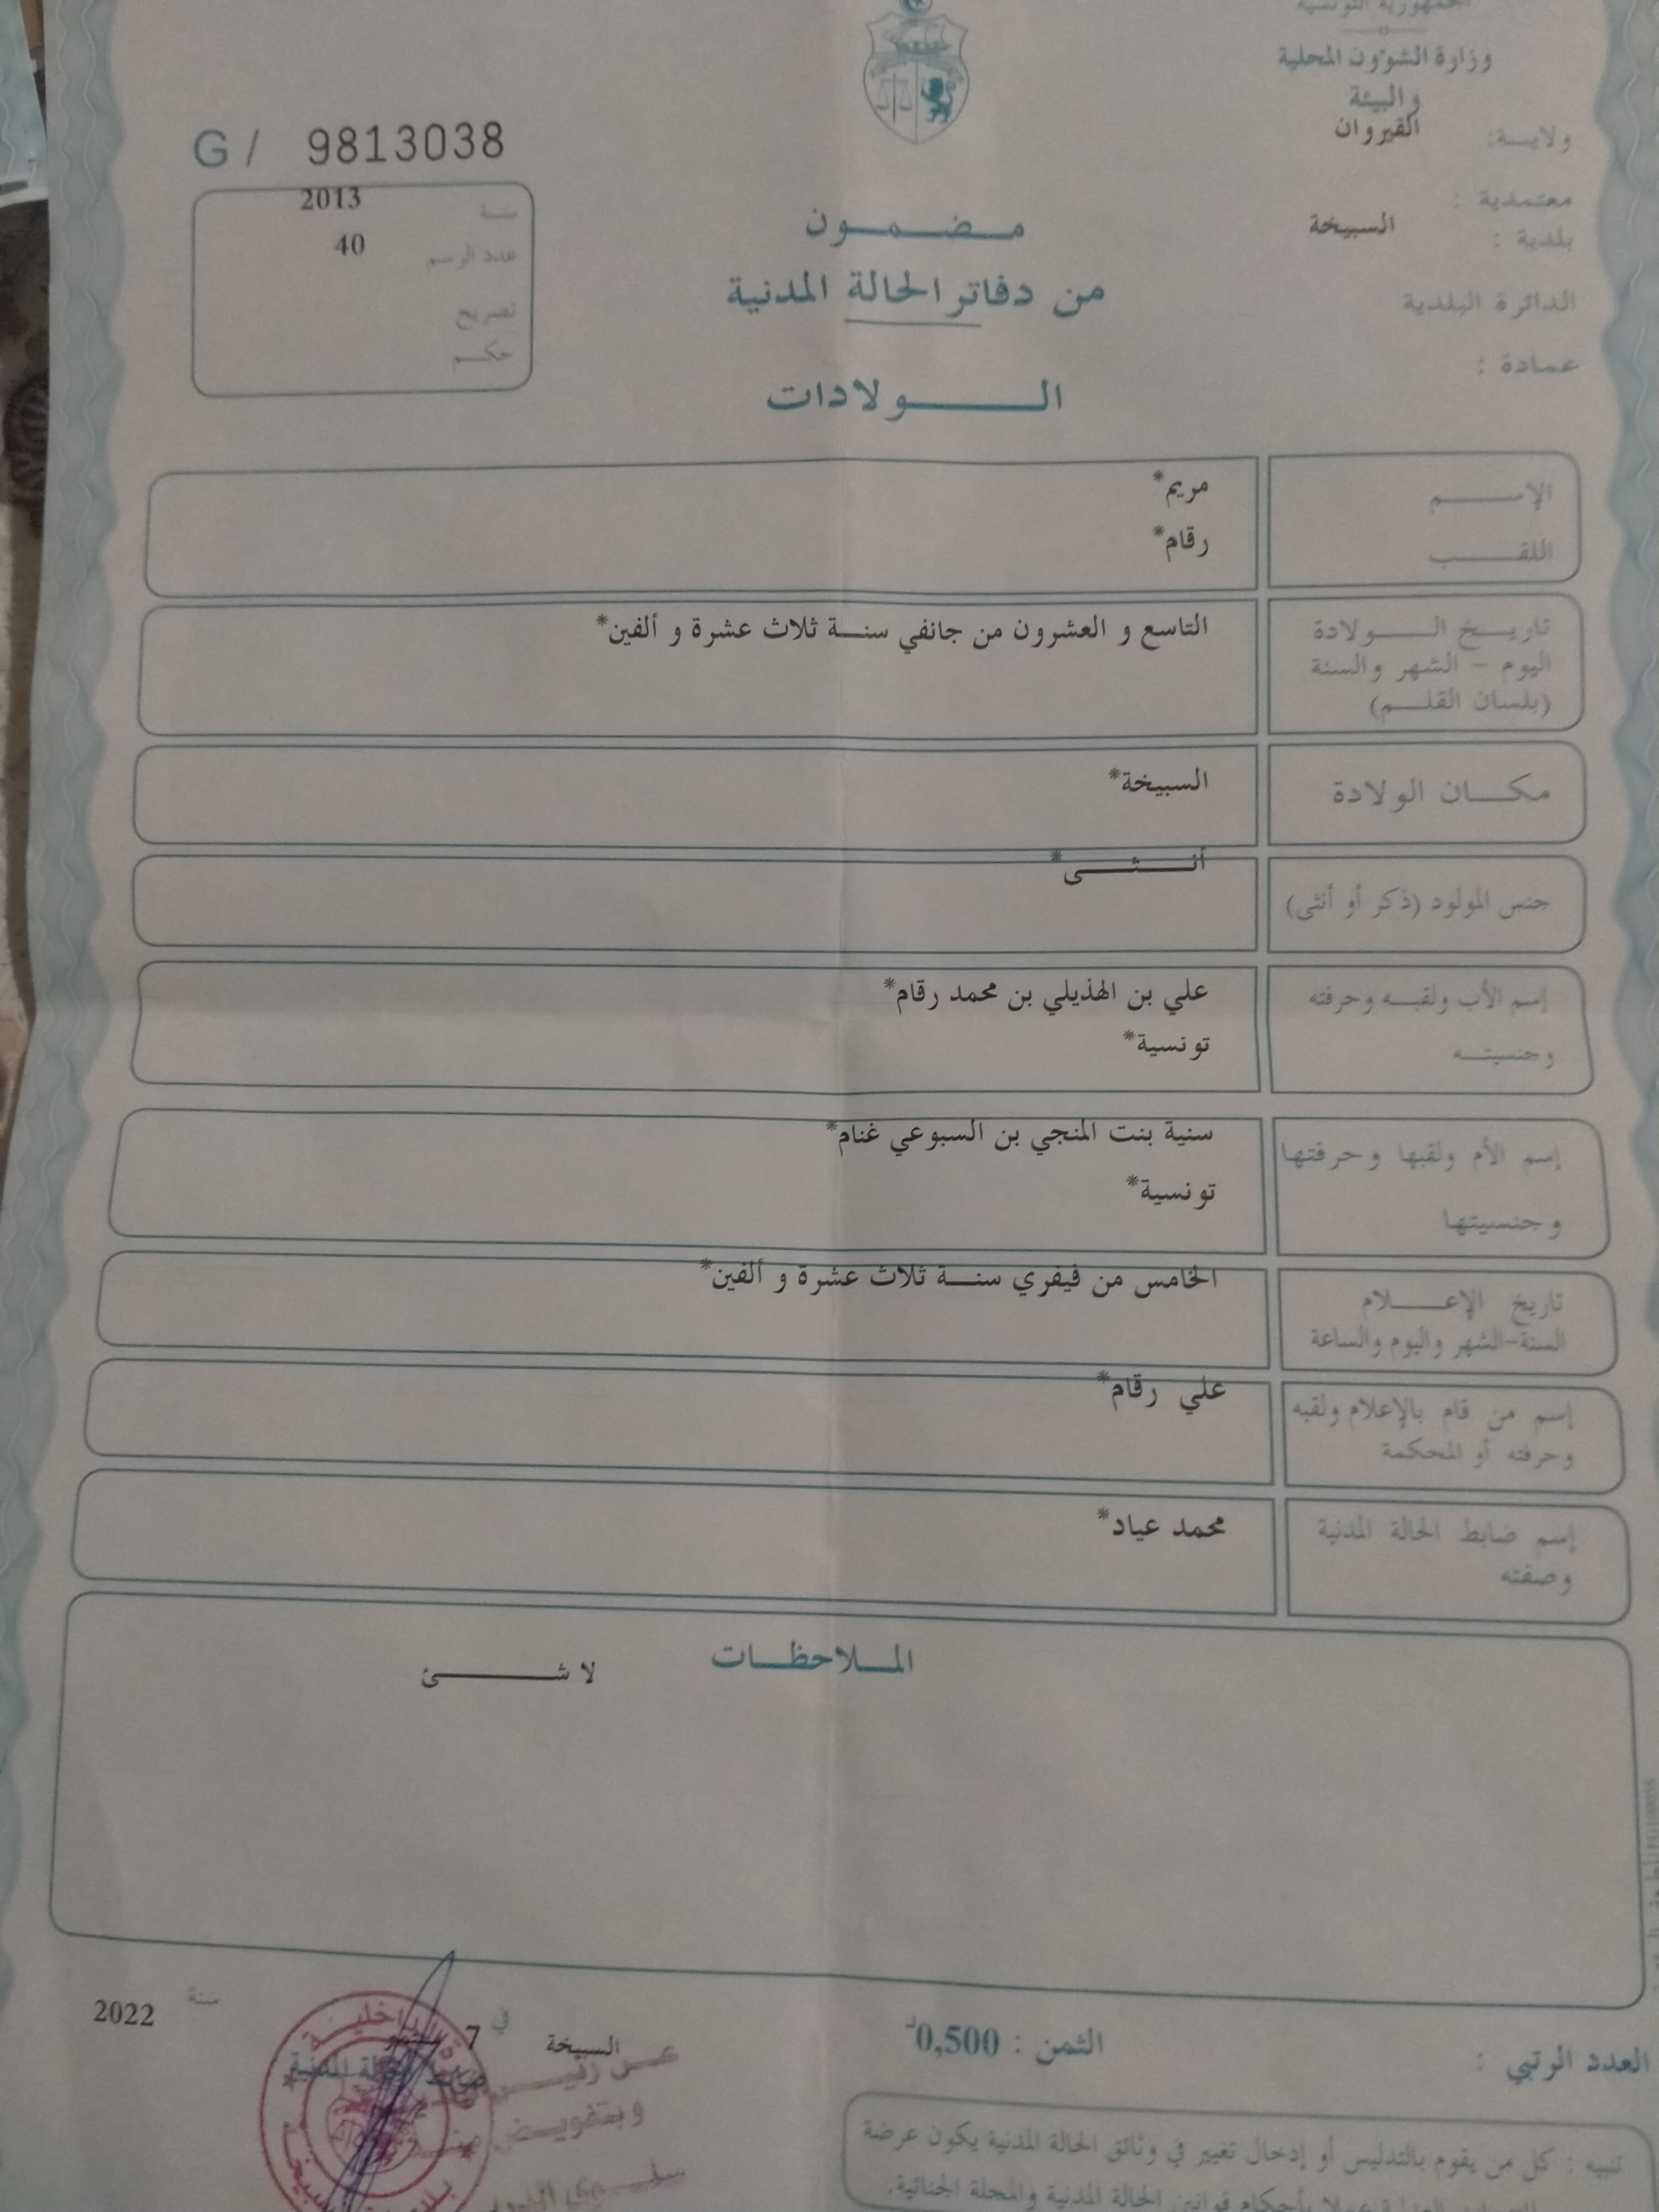 الجمهورية التونسية
وزارة الشؤون المحلية
والبيئة
ولايـة: القيروان
معتمدية :
بلدية : السبيخة
الدائرة البلدية
عمادة :
G / 9813038
سنة 2013
عدد الرسم 40
تصريح
حكم
مضمون
من دفاتر الحالة المدنية
الولادات
الإسم مريم*
اللقب رقام*
تاريخ الولادة
اليوم - الشهر والسنة
(بلسان القلم)
التاسع و العشرون من جانفي سنة ثلاث عشرة و ألفين*
مكان الولادة السبيخة*
جنس المولود (ذكر أو أنثى) أنثى*
إسم الأب ولقبه وحرفته
وجنسيته
علي بن الهذيلي بن محمد رقام*
تونسية*
إسم الأم ولقبها وحرفتها
وجنسيتها
سنية بنت المنجي بن السبوعي غنام*
تونسية*
تاريخ الإعلام
السنة-الشهر واليوم والساعة
الخامس من فيفري سنة ثلاث عشرة و ألفين*
إسم من قام بالإعلام ولقبه
وحرفته أو المحكمة
علي رقام*
إسم ضابط الحالة المدنية
وصفته
محمد عياد*
الملاحظات
لا شئ
العدد الرتبي :
الثمن : 0,500د
السبيخة في 7 سنة 2022
ضابط الحالة المدنية
عن رئيس
وبتفويض منه
تنبيه : كل من يقوم بالتدليس أو إدخال تغيير في وثائق الحالة المدنية يكون عرضة
عملا بأحكام قوانين الحالة المدنية والمجلة الجنائية.